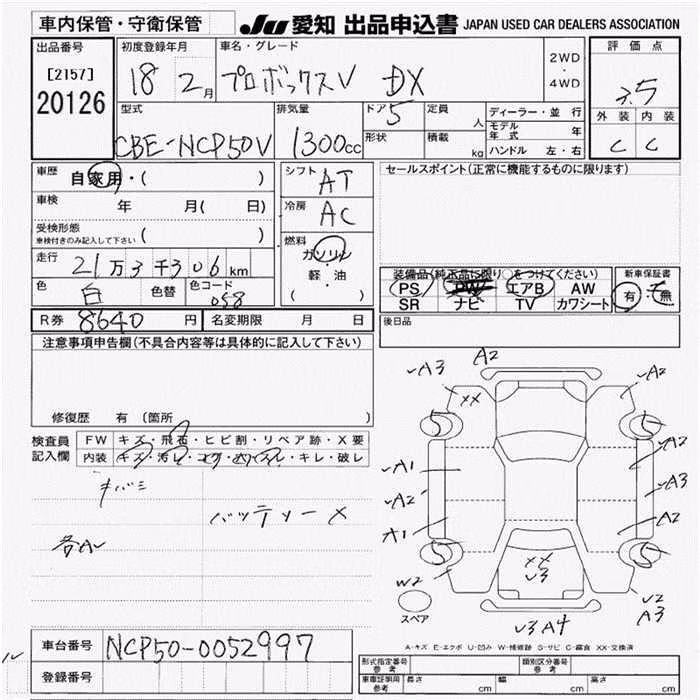 車内保管・守衛保管
JU 愛知 出品申込書 JAPAN USED CAR DEALERS ASSOCIATION
出品番号
[2157]
20126
初度登録年月
18 2月
車名・グレード
プロボックスV DX
2WD
・
4WD
評価点
3.5
外装 内装
C C
型式
CBE-NCP50V
排気量
1300cc
ドア 5
形状
定員 人
積載 kg
ディーラー・並行
モデル年式 年
ハンドル 左・右
車歴 自家用・( )
車検 年 月( 日)
受検形態
車検付きのみ記入して下さい ( )
走行 21万3千306km
色 白 色替 色コード 058
シフト AT
冷房 AC
燃料
ガソリン
軽・油
( )
セールスポイント(正常に機能するものに限ります)
装備品(純正品に限り○をつけてください)
PS PW エアB AW
SR ナビ TV カワシート
新車保証書
有・無
R券 8640円 名変期限 月 日
後日品
注意事項申告欄(不具合内容等は具体的に記入して下さい)
修復歴 有 (箇所 )
検査員
記入欄
FW キズ・飛石・ヒビ割・リペア跡・X要
内装 キズ・汚レ・コゲ・穴・スレ・キレ・破レ
キバミ
バッテリー ×
各A
A3 A2 A2
XX
S S
A1 A2
A2 A3
A1 A2
S S
XX
U3
W2 U2
A3
スペア
U3 A4
A-キズ E-エクボ U-凹み W-補修跡 S-サビ C-腐食 XX-交換済
車台番号 NCP50-0052997
登録番号
形式指定番号 参考
類別区分番号 参考
車庫証明用 参考 長さ cm 幅 cm 高さ cm